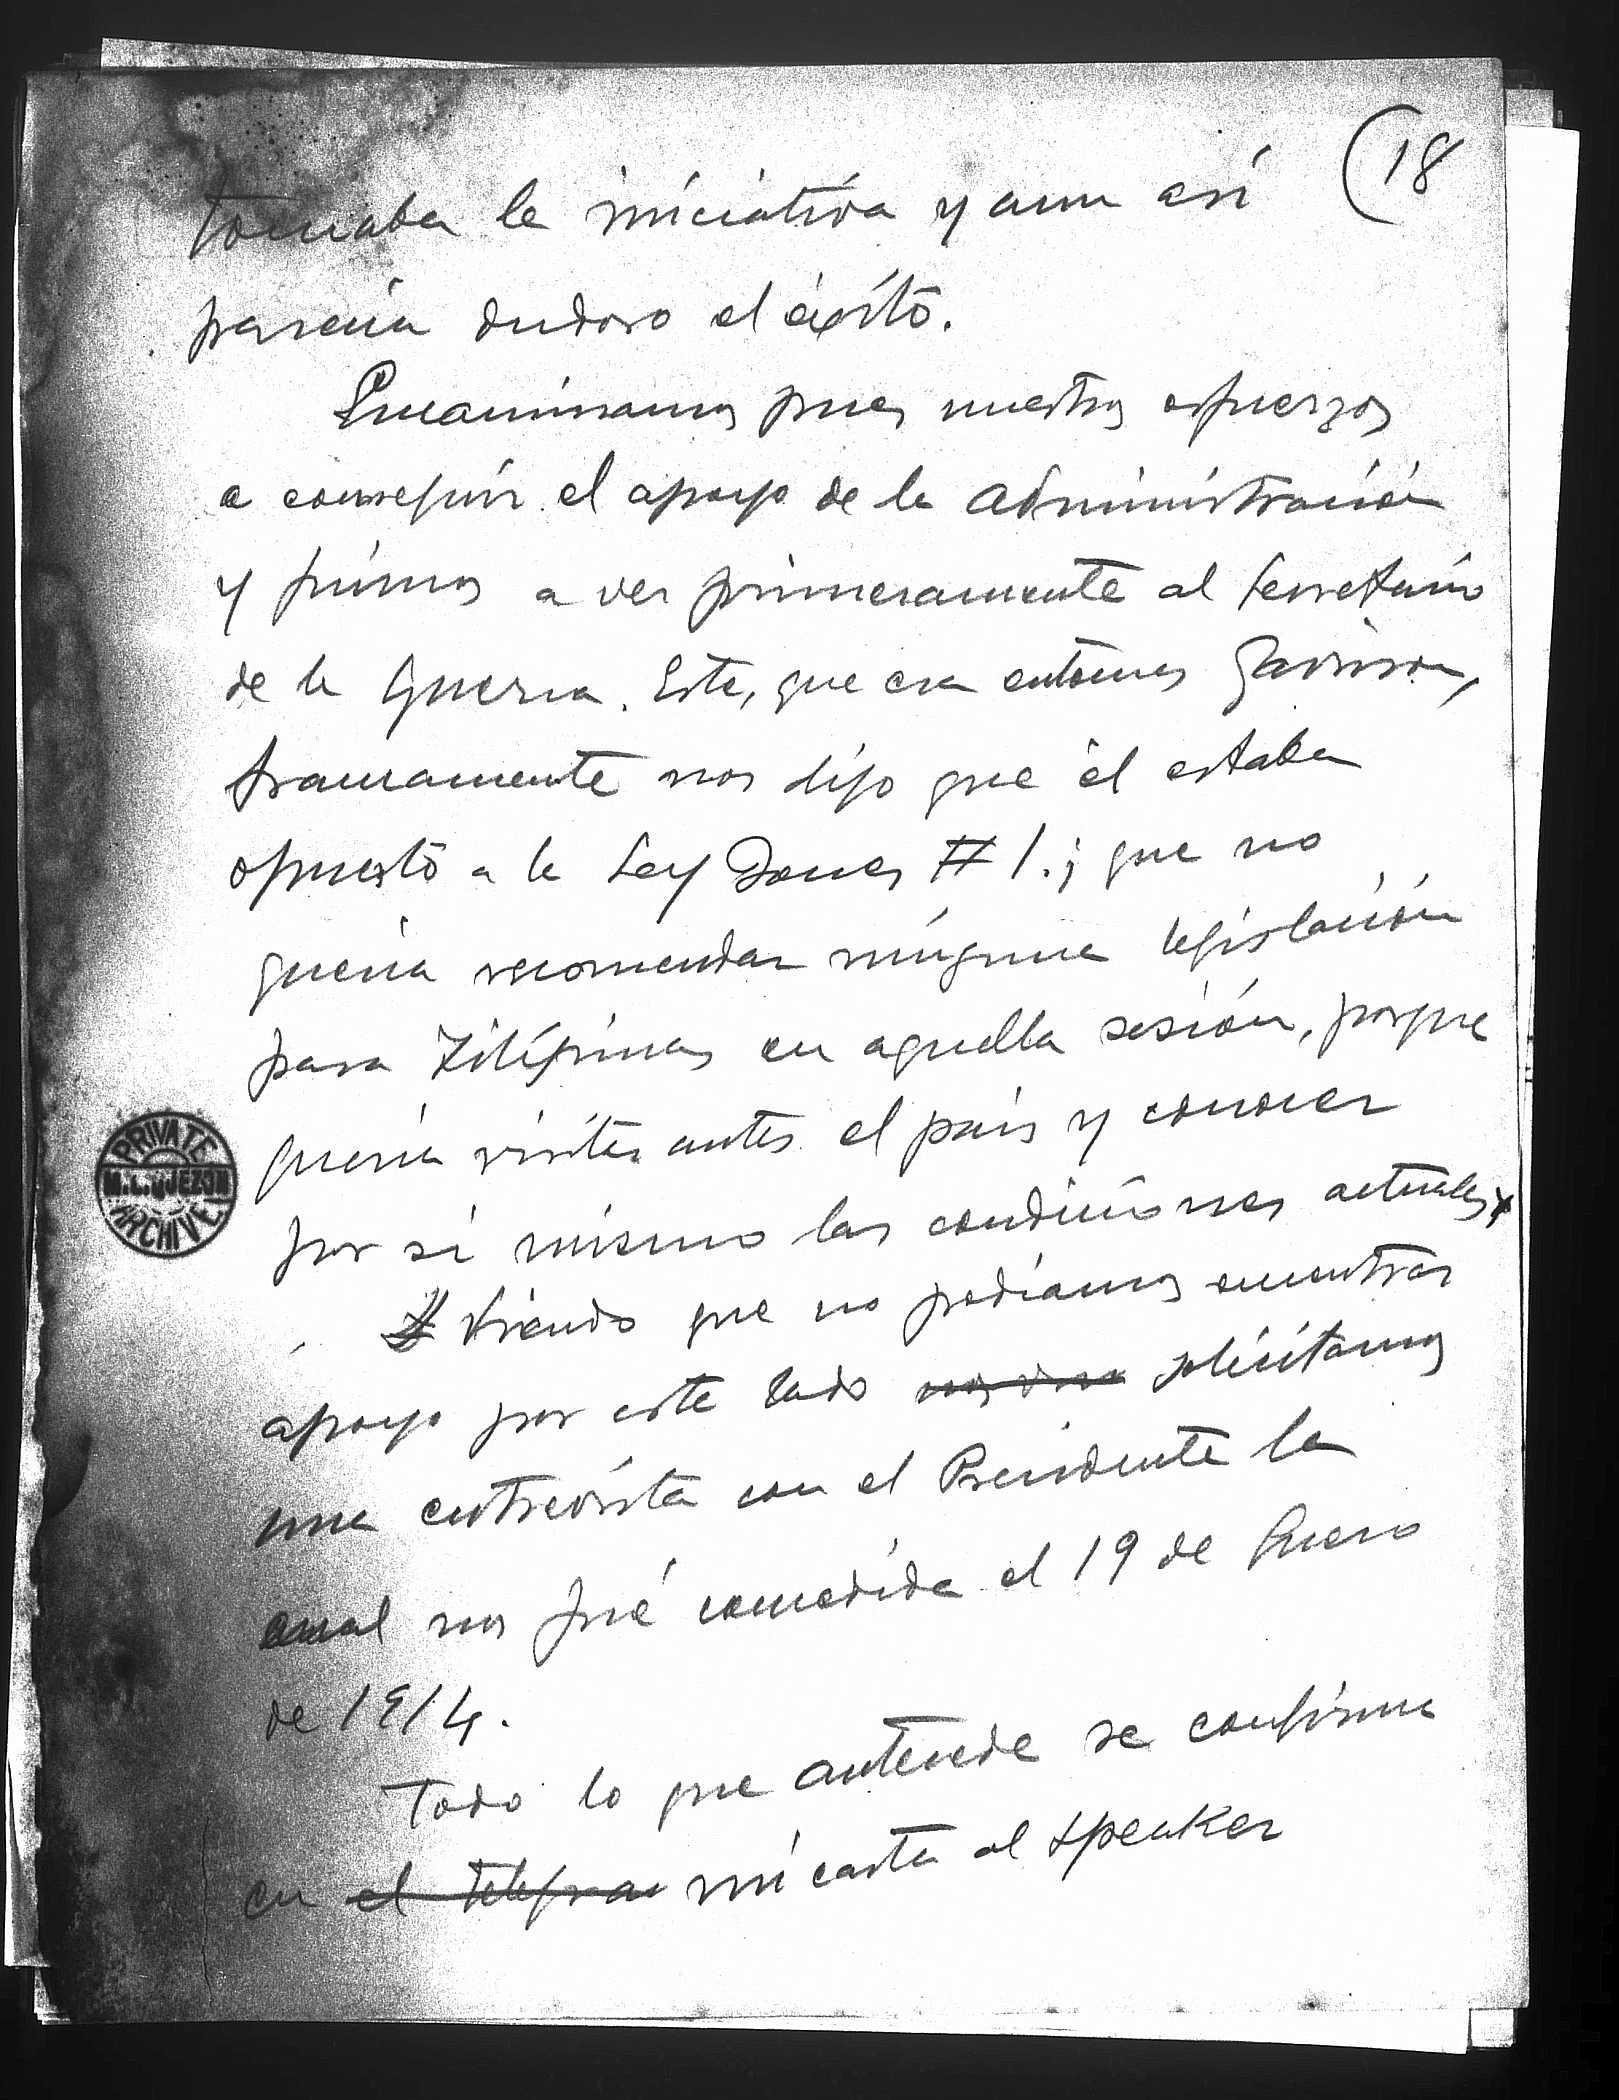 (18
tomaba la iniciativa y aun asi
parecia dudoso el éxito.
Encaminamos pues nuestros esfuerzos
a conseguir el apoyo de la administración
y fuimos a ver primeramente al Secretario
de la Guerra. Este, que era entonces Garrison,
francamente nos dijo que él estaba
opuesto a la Ley Jones # 1.; que no
queria recomendar ninguna legislación
para Filipinas en aquella sesión, porque
queria visitar antes el pais y conocer
por si mismo las condiciones actuales.
Viendo que no podiamos encontrar
apoyo por este lado solicitamos
una entrevista con el Presidente la
cual nos fué concedida el 19 de Enero
de 1914.
Todo lo que antecede se confirma
en el telegrama mi carta al Speaker
PRIVATE
M.L.QUEZON
ARCHIVE